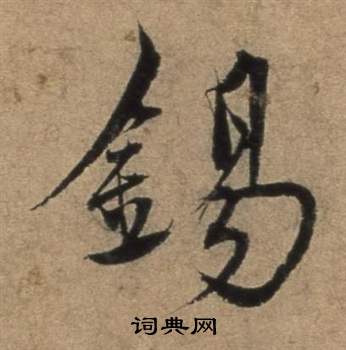 錫
词典网